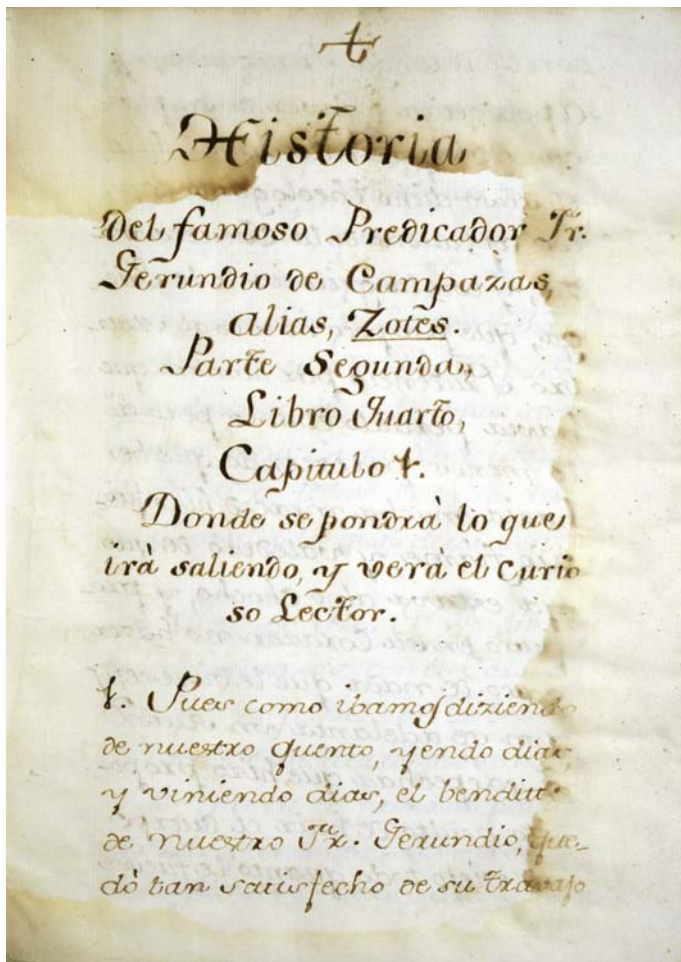 Historia
Del famoso Predicador Fr.
Gerundio de Campazas,
alias, Zotes.
Parte Segunda,
Libro Quarto,
Capitulo 1.
Donde se pondrà lo que
irà saliendo, y verà el Curio
so Lector.
1. Pues como ibamos diziendo
de nuestro quento, yendo dias,
y viniendo dias, el benditto
de nuestro Fr. Gerundio, que-
dò tan satisfecho de su travajo